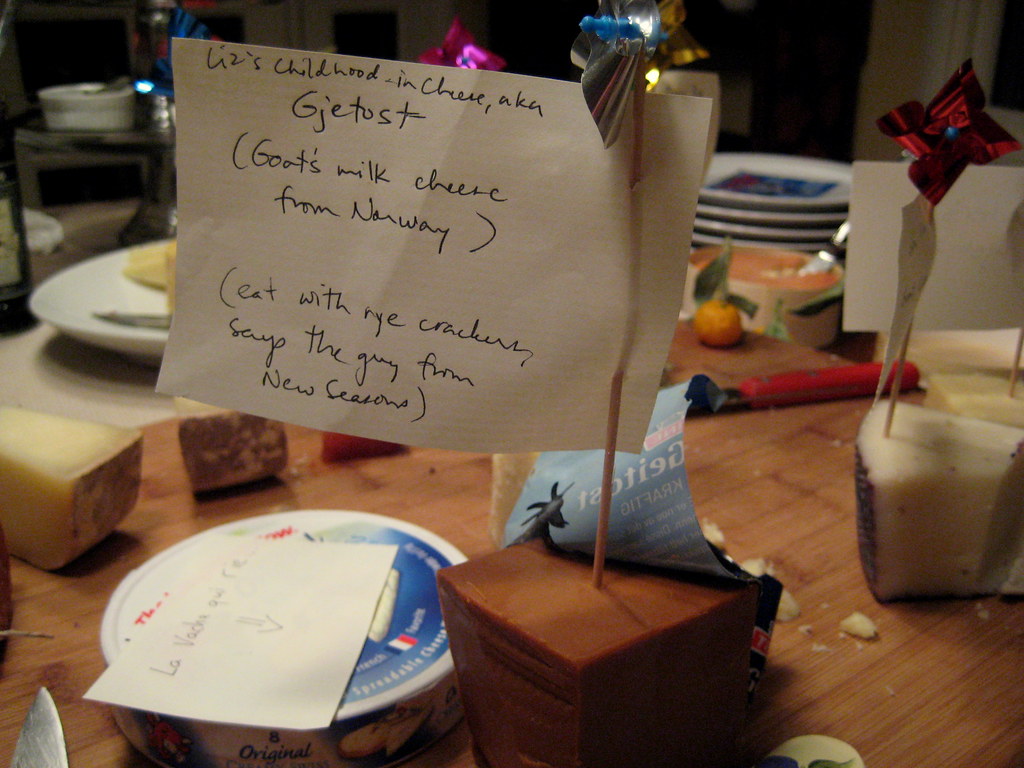 Liz's childhood-in cheese, aka
Gjetost
(Goat's milk cheese
from Norway)
(eat with rye crackers,
says the guy from
New Seasons)
Geitost
KRAFTIG
La Vache qui rie
Favorite
Spreadable Cheese
8
Original